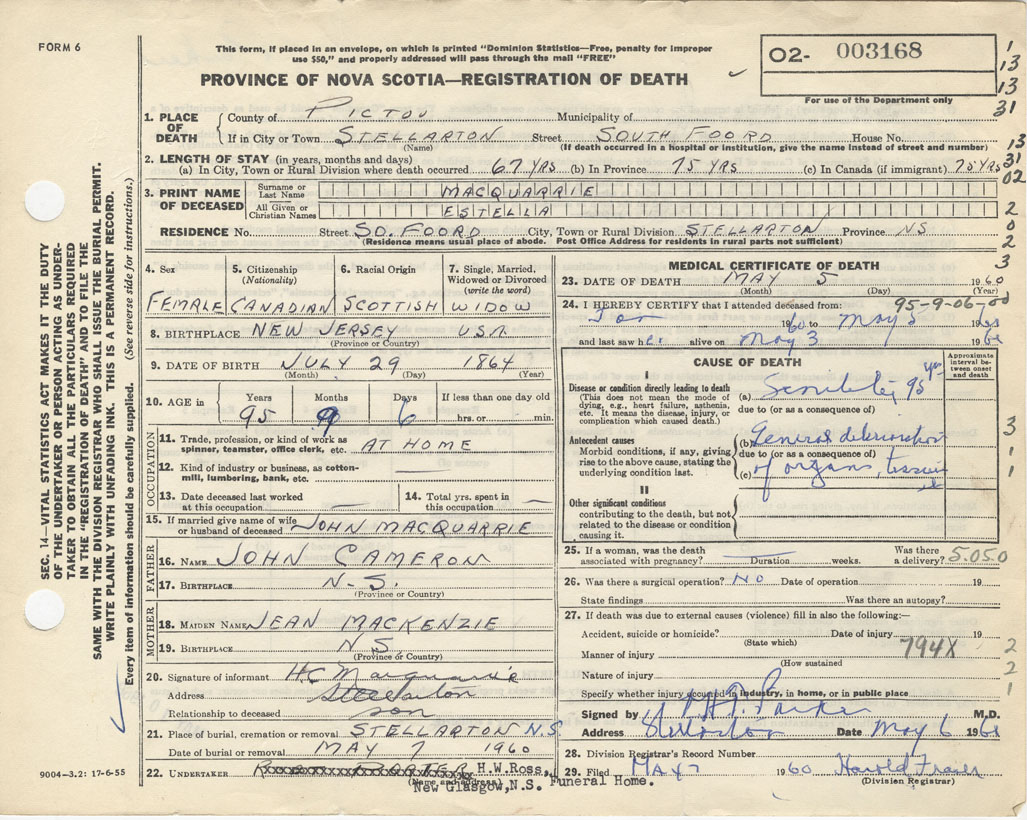 FORM 6
This form, if placed in an envelope, on which is printed "Dominion Statistics—Free, penalty for improper
use $50," and properly addressed will pass through the mail "FREE"
PROVINCE OF NOVA SCOTIA—REGISTRATION OF DEATH
02- 003168
For use of the Department only
1
13
13
31
13
31
02
2
0
2
3
1. PLACE OF DEATH
County of PICTOU Municipality of
If in City or Town STELLARTON Street SOUTH FOORD House No.
(Name) (If death occurred in a hospital or institution, give the name instead of street and number)
2. LENGTH OF STAY (in years, months and days)
(a) In City, Town or Rural Division where death occurred 67 YRS (b) In Province 75 YRS (c) In Canada (if immigrant) 75 YRS
3. PRINT NAME OF DECEASED
Surname or Last Name MACQUARRIE
All Given or Christian Names ESTELLA
RESIDENCE No. Street SO. FOORD City, Town or Rural Division STELLARTON Province NS
(Residence means usual place of abode. Post Office Address for residents in rural parts not sufficient)
4. Sex
FEMALE
5. Citizenship
(Nationality)
CANADIAN
6. Racial Origin
SCOTTISH
7. Single, Married,
Widowed or Divorced
(write the word)
WIDOW
8. BIRTHPLACE NEW JERSEY USA
(Province or Country)
9. DATE OF BIRTH JULY 29 1864
(Month) (Day) (Year)
10. AGE in
Years Months Days If less than one day old
95 9 6 hrs. or min.
OCCUPATION
11. Trade, profession, or kind of work as
spinner, teamster, office clerk, etc. AT HOME
12. Kind of industry or business, as cotton-
mill, lumbering, bank, etc. —
13. Date deceased last worked
at this occupation —
14. Total yrs. spent in
this occupation —
15. If married give name of wife
or husband of deceased JOHN MACQUARRIE
FATHER
16. NAME JOHN CAMERON
17. BIRTHPLACE N.S.
(Province or Country)
MOTHER
18. MAIDEN NAME JEAN MACKENZIE
19. BIRTHPLACE NS
(Province or Country)
20. Signature of informant H.C. Macquarrie
Address Stellarton
Relationship to deceased son
21. Place of burial, cremation or removal STELLARTON N.S.
Date of burial or removal MAY 7 1960
22. UNDERTAKER H.W.Ross,
(Name and address)
New Glasgow,N.S. Funeral Home.
MEDICAL CERTIFICATE OF DEATH
23. DATE OF DEATH MAY 5 1960
(Month) (Day) (Year)
24. I HEREBY CERTIFY that I attended deceased from: 95-9-06-00
Jan 1960 to May 5 1960
and last saw her alive on May 3 1960
CAUSE OF DEATH
Approximate
interval be-
tween onset
and death
I
Disease or condition directly leading to death
(This does not mean the mode of
dying, e.g., heart failure, asthenia,
etc. It means the disease, injury, or
complication which caused death.)
(a) Senility 95 yrs
due to (or as a consequence of)
Antecedent causes
Morbid conditions, if any, giving
rise to the above cause, stating the
underlying condition last.
(b) General deterioration
due to (or as a consequence of)
(c) of organs, tissue
3
1
1
II
Other significant conditions
contributing to the death, but not
related to the disease or condition
causing it.
25. If a woman, was the death
associated with pregnancy? — Duration weeks. Was there
a delivery?
5.050
26. Was there a surgical operation? NO Date of operation 19
State findings Was there an autopsy?
27. If death was due to external causes (violence) fill in also the following:—
Accident, suicide or homicide? Date of injury 19
(State which)
794X
Manner of injury
(How sustained
Nature of injury
Specify whether injury occurred in industry, in home, or in public place
2
2
1
Signed by Parker M.D.
Address Stellarton Date May 6 1960
28. Division Registrar's Record Number
29. Filed MAY 7 1960 Harold Fraser
(Division Registrar)
SEC. 14—VITAL STATISTICS ACT MAKES IT THE DUTY
OF THE UNDERTAKER OR PERSON ACTING AS UNDER-
TAKER TO OBTAIN ALL THE PARTICULARS REQUIRED
IN THE "REGISTRATION OF DEATH" AND TO FILE THE
SAME WITH THE DIVISION REGISTRAR WHO SHALL ISSUE THE BURIAL PERMIT.
WRITE PLAINLY WITH UNFADING INK. THIS IS A PERMANENT RECORD.
Every item of information should be carefully supplied. (See reverse side for instructions.)
9004—3.2: 17-6-55